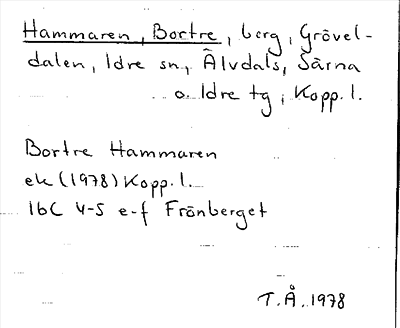 Hammaren, Bortre, berg, Grövel-
dalen, Idre sn, Älvdals, Särna
o. Idre tg, Kopp. l.
Bortre Hammaren
ek (1978) Kopp. l.
16C 4-5 e-f Frönberget
T.Å. 1978